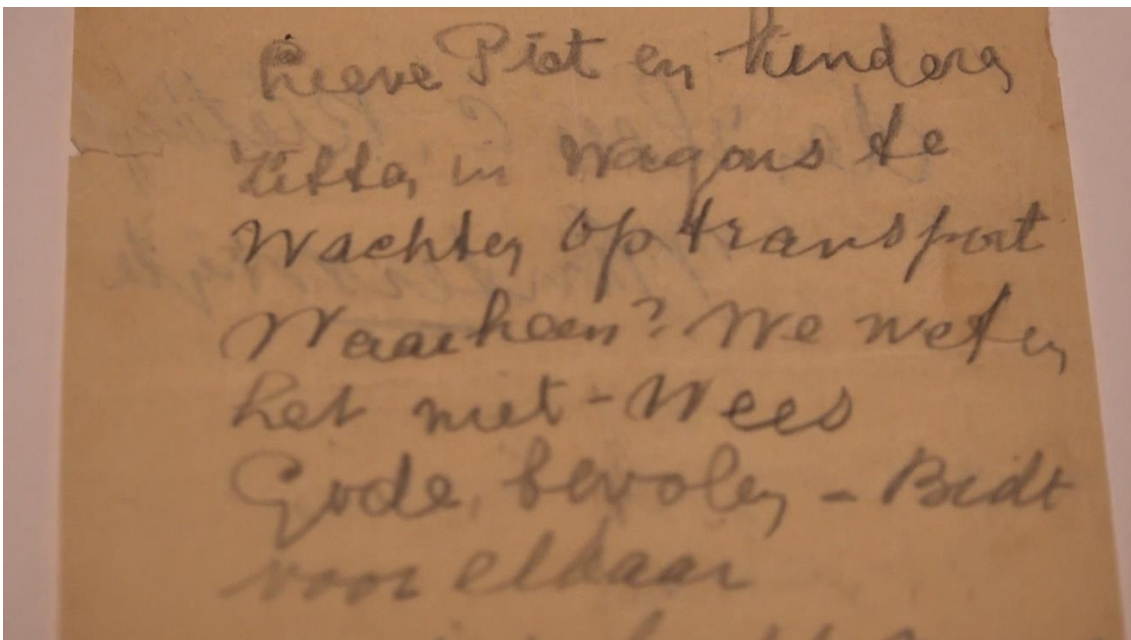 Lieve Piet en kinderen
Zitten in wagons te
Wachten op transport
Waarheen? We weten
het niet - Wees
Gode, bevolen - Bidt
voor elkaar